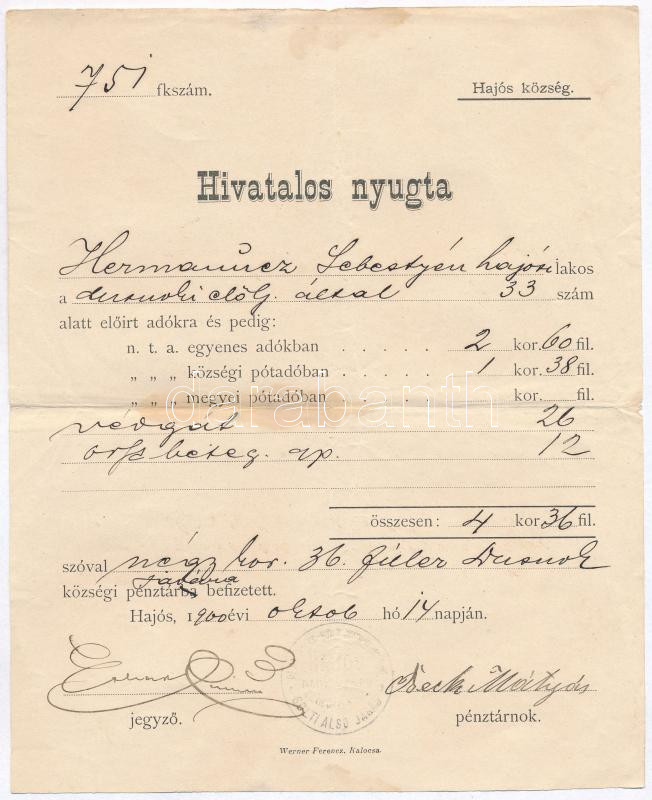 751 fkszám.
Hajós község.
Hivatalos nyugta
Sebestyén hajósi lakos
a dusnoki elölj. által 33 szám
alatt előirt adókra és pedig:
n. t. a. egyenes adókban . . . . . 2 kor. 60 fil.
„ „ „ községi pótadóban . . . . . 1 kor. 38 fil.
„ „ „ megyei pótadóban . . . . . kor. fil.
védgát 26
beteg. ap. 12
összesen: 4 kor 36 fil.
szóval négy kor. 36. fillér Dusnok
javára
községi pénztárba befizetett.
Hajós, 1900 évi oktob hó 14 napján.
Beck Mátyás
jegyző. pénztárnok.
SOLTI ALSÓ JÁRÁS
Werner Ferencz, Kalocsa.
darabanth